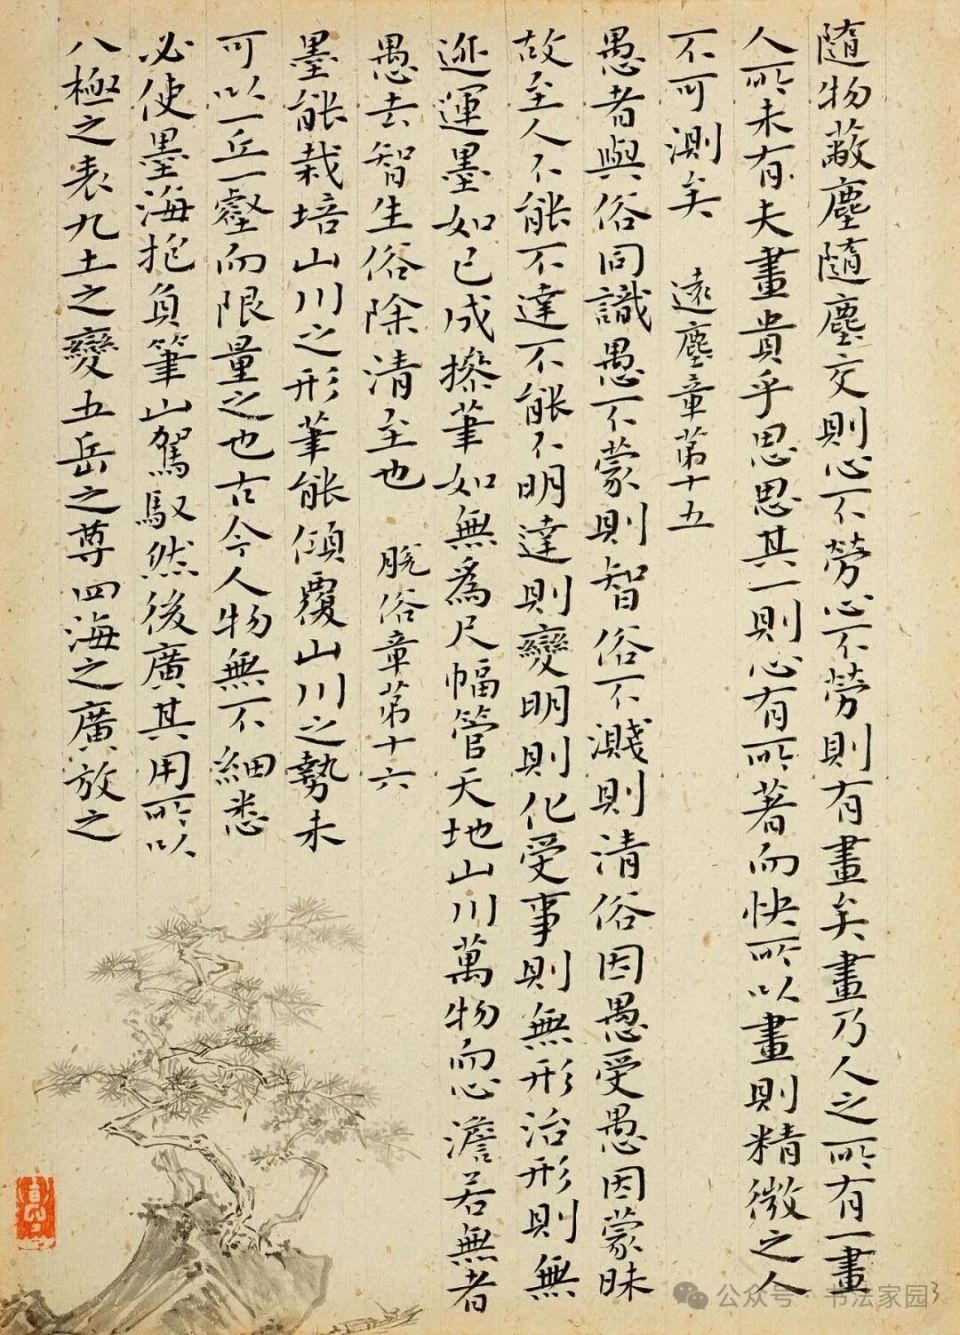 隨物蔽塵隨塵交則心不勞心不勞則有畫矣畫乃人之所有一畫
人所未有夫畫貴乎思思其一則心有所著而快所以畫則精微之入
不可測矣　遠塵章第十五
愚者與俗同識愚不蒙則智俗不濺則清俗因愚受愚因蒙昧
故至人不能不達不能不明達則變明則化受事則無形治形則無
迹運墨如已成操筆如無爲尺幅管天地山川萬物而心澹若無者
愚去智生俗除清至也　脫俗章第十六
墨能栽培山川之形筆能傾覆山川之勢未
可以一丘一壑而限量之也古今人物無不細悉
必使墨海抱負筆山駕馭然後廣其用所以
八極之表九土之變五岳之尊四海之廣放之
公众号 · 书法家园
3